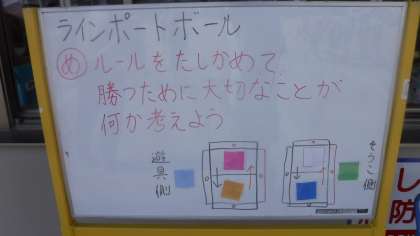 ラインポートボール
め ルールをたしかめて
勝つために大切なことが
何か考えよう
遊具側
そうこ側
し
防